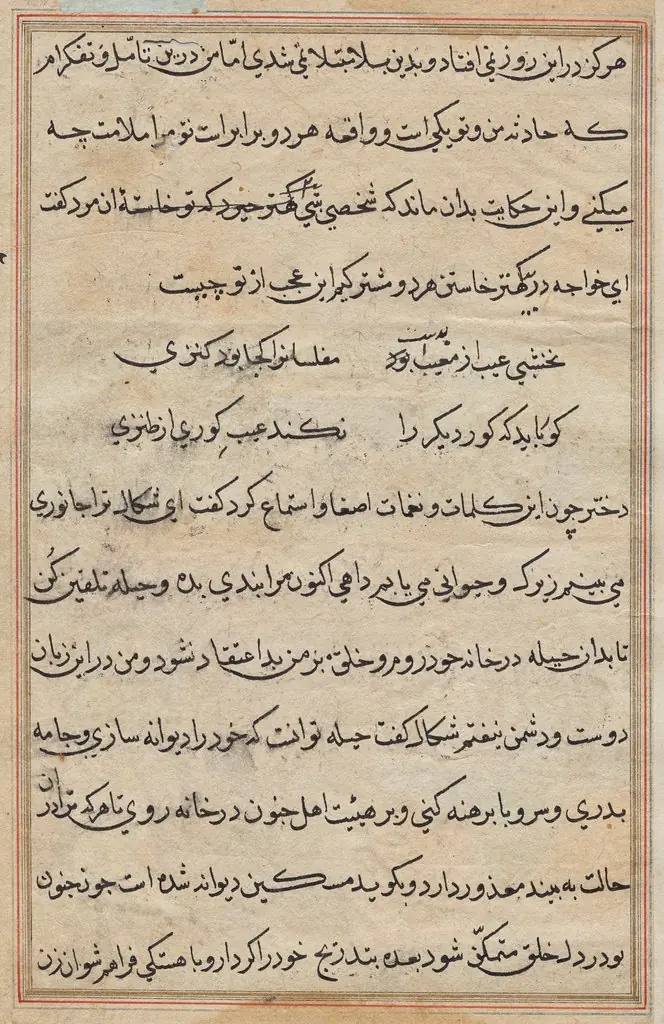 هرکز در این روز نمی افتاد و بدین بلا مبتلا نمی شدی امّا من درین تامّل و تفکرام
که حادثه من و تو یکی است و واقعه هر دو برابر است تو مرا ملامت چه
میکنی و این حکایت بدان ماند که شخصی بتی را کفت حیود که تو خاستهٔ ان مرد کفت
ای خواجه در خاستن هر دو مشترکیم این عجب از تو چیست
نخشبی عیب از معیب بدست مفلسانرا کجا بود کنزی
کور باید که کور دیکر را نکند عیب کوری از طنزی
دختر چون این کلمات و نغمات اصغا و استماع کرد کفت ای شکال ترا جانوری
می بینم زیرک و حیوانی می یابم داهی اکنون مرا پندی بده و حیله تلقین کُن
تا بدان حیله در خانه خود روم و خلق بر من بد اعتقاد نشود و من در این زبان
دوست و دشمن نیفتم شکال کفت حیله تو انست که خود را دیوانه سازی و جامه
بدری و سر و پا برهنه کنی و بر هیئیت اهل جنون در خانه روی تا هر که ترا در ان
حالت به بیند معذور دارد و بکوید مسکین دیوانه شده است چون جنون
تو در دل خلق متمکّن شود بعده بتدریج خود را کرد ار و باهستکی فراهم شو ان زن